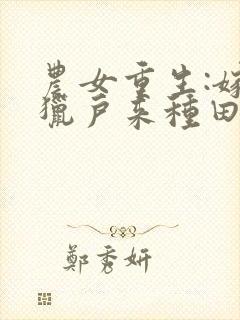 農女重生:嫁
獵戶來種田
鄭秀妍